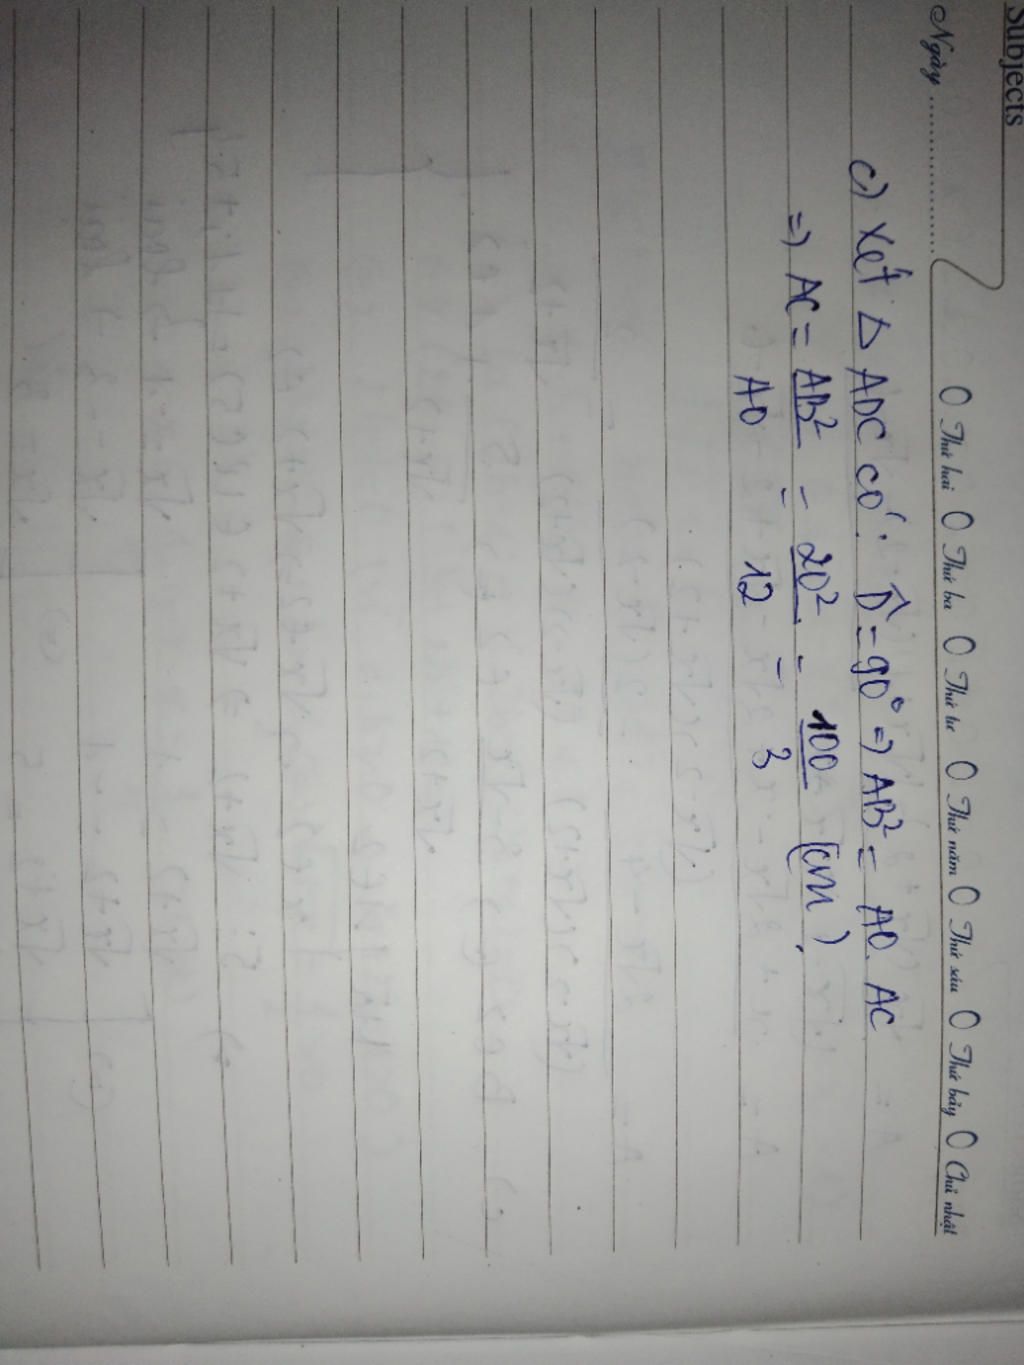 Subjects
Ngày ....................
Thứ hai Thứ ba Thứ tư Thứ năm Thứ sáu Thứ bảy Chủ nhật
c) Xét Δ ADC có: D̂ = 90° => AB² = AO. AC
=> AC = AB²/AO = 20²/12 = 100/3 (cm).